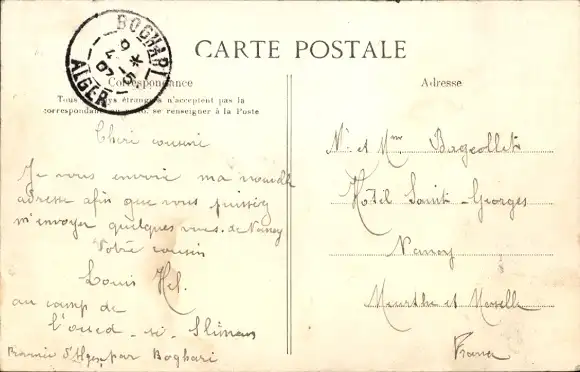 BOGHARI
ALGER
CARTE POSTALE
Correspondance
Tous pays étrangers n'acceptent pas la
correspondance au se renseigner à la Poste
Chers cousins
Je vous envoie ma nouvelle
adresse afin que vous puissiez
m'envoyer quelques vues de Nancy
Votre cousin
Louis Hel.
au camp de
l'oued - si - Sliman
d'Alger par Boghari
Adresse
Mr et Mme Bageollet
Hôtel Saint-Georges
Nancy
Meurthe et Moselle
France